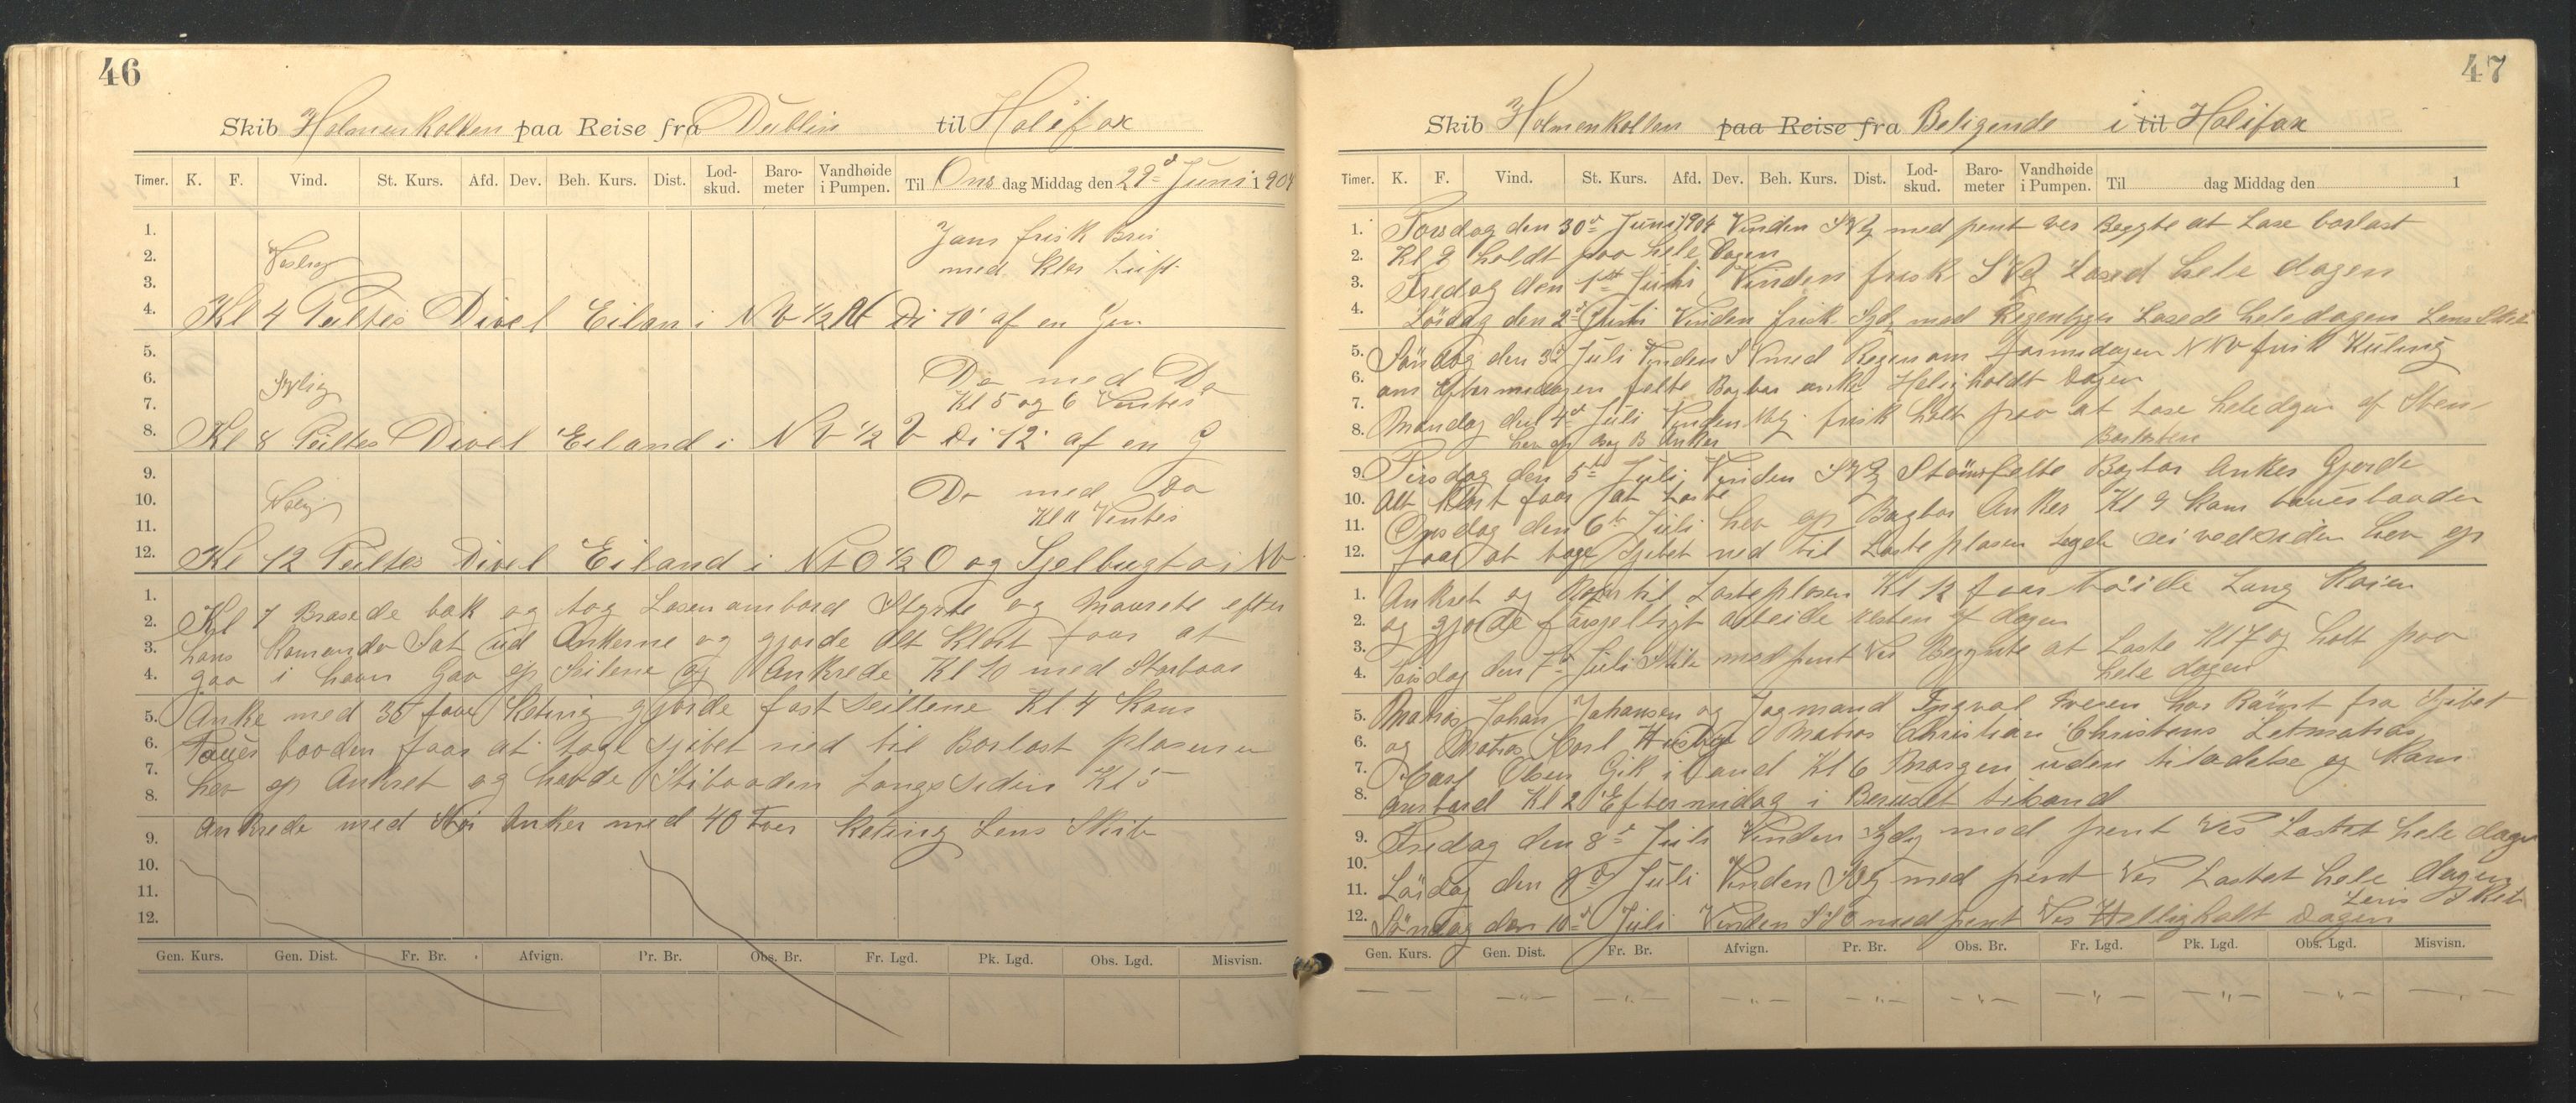 46
Skib Holmenkollen paa Reise fra Dublin til Halifax
Timer. K. F. Vind. St. Kurs. Afd. Dev. Beh. Kurs. Dist. Lod-skud. Baro-meter Vandhøide i Pumpen. Til Ons dag Middag den 29d Juni 1904
1.
Javn frisk Bris
2.
Vestlig
med klar Luft
3.
4. Kl 4 Peiltes Divel Eilan i NV 1/2 N Di 10' af en Gm
5.
6.
SVlig
Do med Do
7.
Kl 5 og 6 Ventes
8. Kl 8 Peiltes Divel Eiland i NV 1/2 V Di 12' af en G
9.
10.
Do med Do
11.
Kl 11 Ventes
12. Kl 12 Peiltes Divel Eiland i NtO 1/2 O og Sjelbugta i NV
1.
2. Kl 7 Brasede bak og tog Losen ambord Styrte og Manrete efter
3. Lons Komando Sat ud Ankerne og gjorde alt Klart foor at
4. gaa i havn Gav op Seilene og Ankrede Kl 10 med Storboas
5. Anke med 30 fave Keting gjorde fast Seillene Kl 4 kom
6. Tauer baaden foor at tage sjibet ned til Barlast plasen
7.
8. hev op Ankret og havde Stibaaden Langs Siden Kl 5
9. Ankrede med Anker med 40 Fver Keting Lens Skib
10.
11.
12.
Gen. Kurs. Gen. Dist. Fr. Br. Afvign. Pr. Br. Obs. Br. Fr. Lgd. Pk. Lgd. Obs. Lgd. Misvisn.
47
Skib Holmenkollen paa Reise fra Beligende i til Halifax
Timer. K. F. Vind. St. Kurs. Afd. Dev. Beh. Kurs. Dist. Lod-skud. Baro-meter Vandhøide i Pumpen. Til dag Middag den 1
1. Torsdag den 30d Juni 1904 Vinden SVlg med pent ver Begyte at Lose barlast
2. Kl 9 holdt paa hele Dagen
3. Fredag den 1st Juli Vinden frisk SVlg Losed hele dagen
4. Lördag den 2d Juli Vinden frisk Sydlg med Regenbyger Losede hele dagen Lens Skib
5. Söndag den 3d Juli Vinden SV med Regen om formidagen NNV frisk Kuling
6. om Eftermidagen felte Bagbor anke Helig holdt Dagen
7. Mandag den 4d Juli Vinden Vlg frisk holt paa at Lose hele dgen af Sten
8. hev op Bag B Anker Barlasten
9. Tirsdag den 5te Juli Vinden SVlg Storm felte Bagbor Anker Gjorde
10. Alt Klart foor at Laste
11. Onsdag den 6te Juli hev op Bagbor Anker Kl 9 kom taueabaaden
12. foor at tage sjibet ned til Laste plasen Legde sei ved siden hev op
1. Ankret og til Lasteplasen Kl 12 foor töide Lang Kaien
2. og gjorde foisjelligt arbeide resten af dagen
3.
4. Torsdag den 7d Juli Stile med pent Ver Begynte at Laste Kl 7 og holt paa
hele dagen
5. Matros Johan Johansen og Jogmand Ingval har Römt fra Sjibet
6. og Matros Carl Matros Christian Christens Letmatros
7. Olsen Gik i Land Kl 6 Morgen uden tiladelse og kom
8. ambord Kl 2 Eftermidag i Beruset tilsand
9. Fredag den 8d Juli Vinden Sydlg med pent Ver Lastet hele dagen
10.
11. Lördag den 9d Juli Vinden SVlg med pent Ver Lastet hele dagen
Lens Skib
12. Söndag den 10d Juli Vinden SSO med pent Ver Helligholt Dagen
Gen. Kurs. Gen. Dist. Fr. Br. Afvign. Pr. Br. Obs. Br. Fr. Lgd. Pk. Lgd. Obs. Lgd. Misvisn.
— — — " — — " — — " — — " — — " — — " — — " — — " — — " —